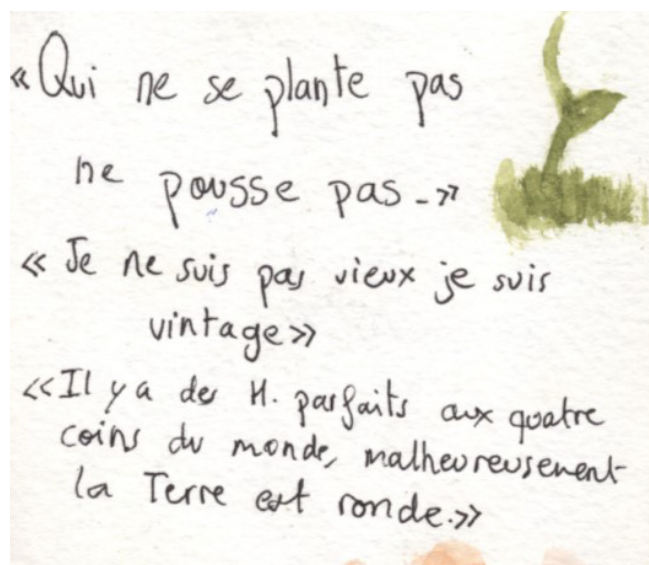 «Qui ne se plante pas
ne pousse pas-»
«Je ne suis pas vieux je suis
vintage»
«Il y a des H. parfaits aux quatre
coins du monde, malheureusement
la Terre est ronde.»